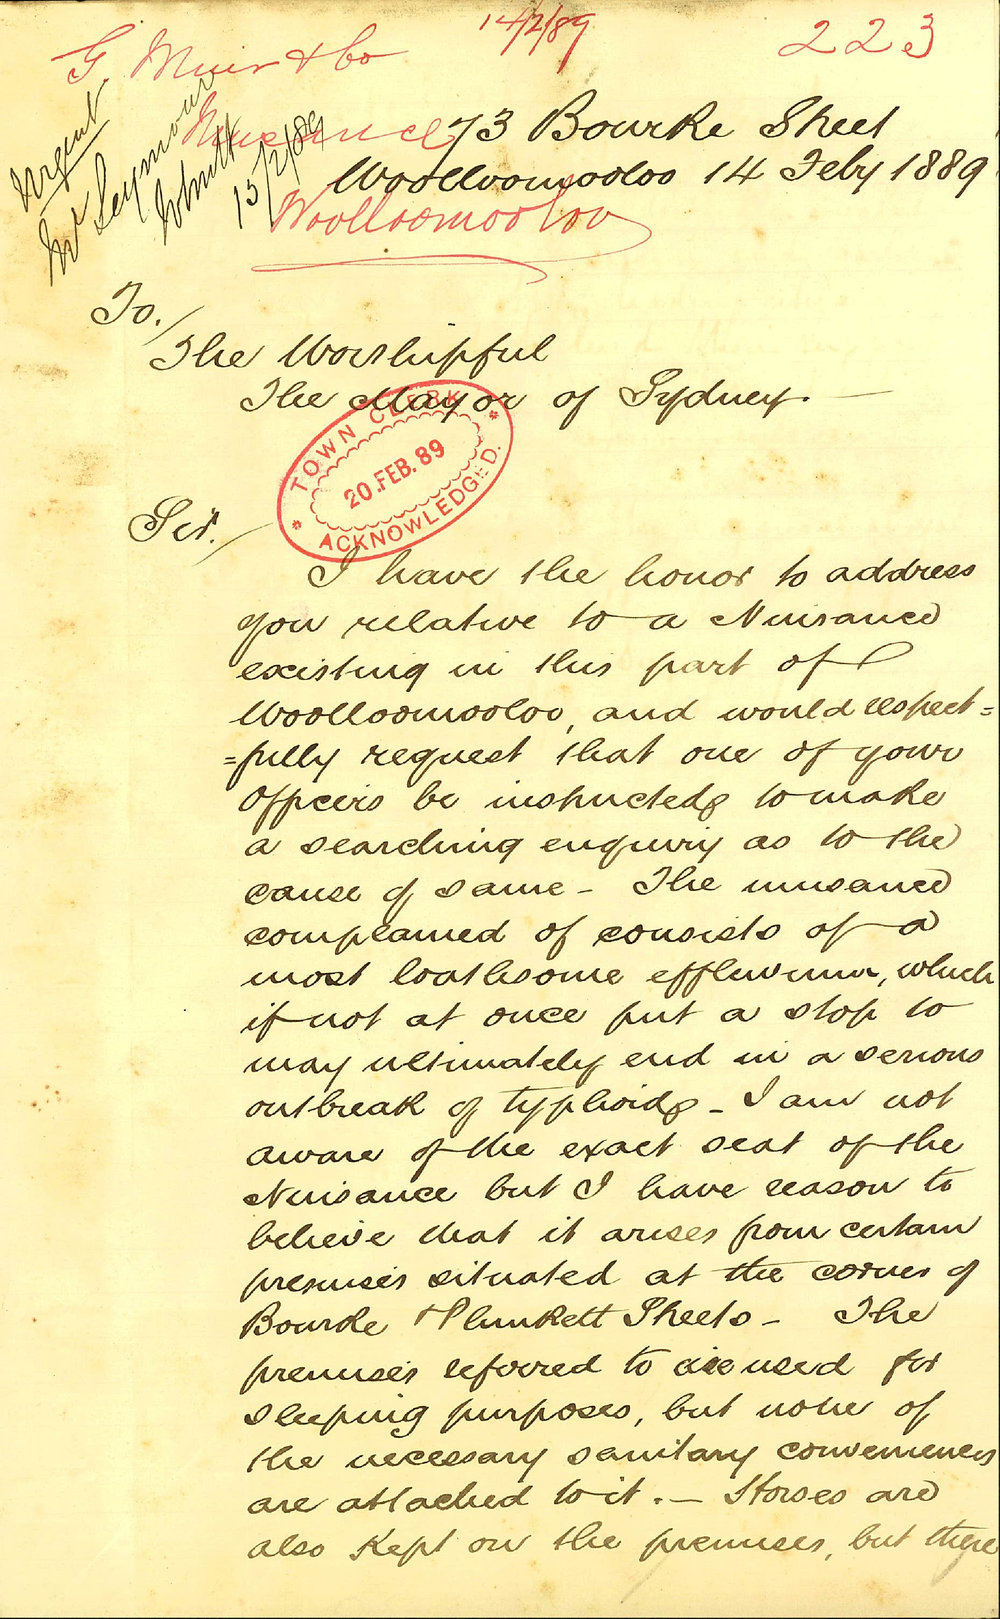 14/2/89
223
G. Muir & Co
Nuisance
Woolloomooloo
Urgent
Mr Seymour
15/2/89
73 Bourke Street
Woolloomooloo 14 Feby 1889
To.
The Worshipful
The Mayor of Sydney.
TOWN CLERK
20.FEB.89
ACKNOWLEDGED.
Sir.
I have the honor to address
you relative to a Nuisance
existing in this part of
Woolloomooloo, and would respect=
=fully request that one of your
Officers be instructed to make
a searching enquiry as to the
cause of same - The nuisance
complained of consists of a
most loathsome effluvium, which
if not at once put a stop to
may ultimately end in a serious
outbreak of typhoid - I am not
aware of the exact seat of the
Nuisance but I have reason to
believe that it arises from certain
premises situated at the corner of
Bourke & Plunkett Streets - The
premises referred to are used for
sleeping purposes, but none of
the necessary sanitary conveniences
are attached to it. - Horses are
also kept on the premises, but there